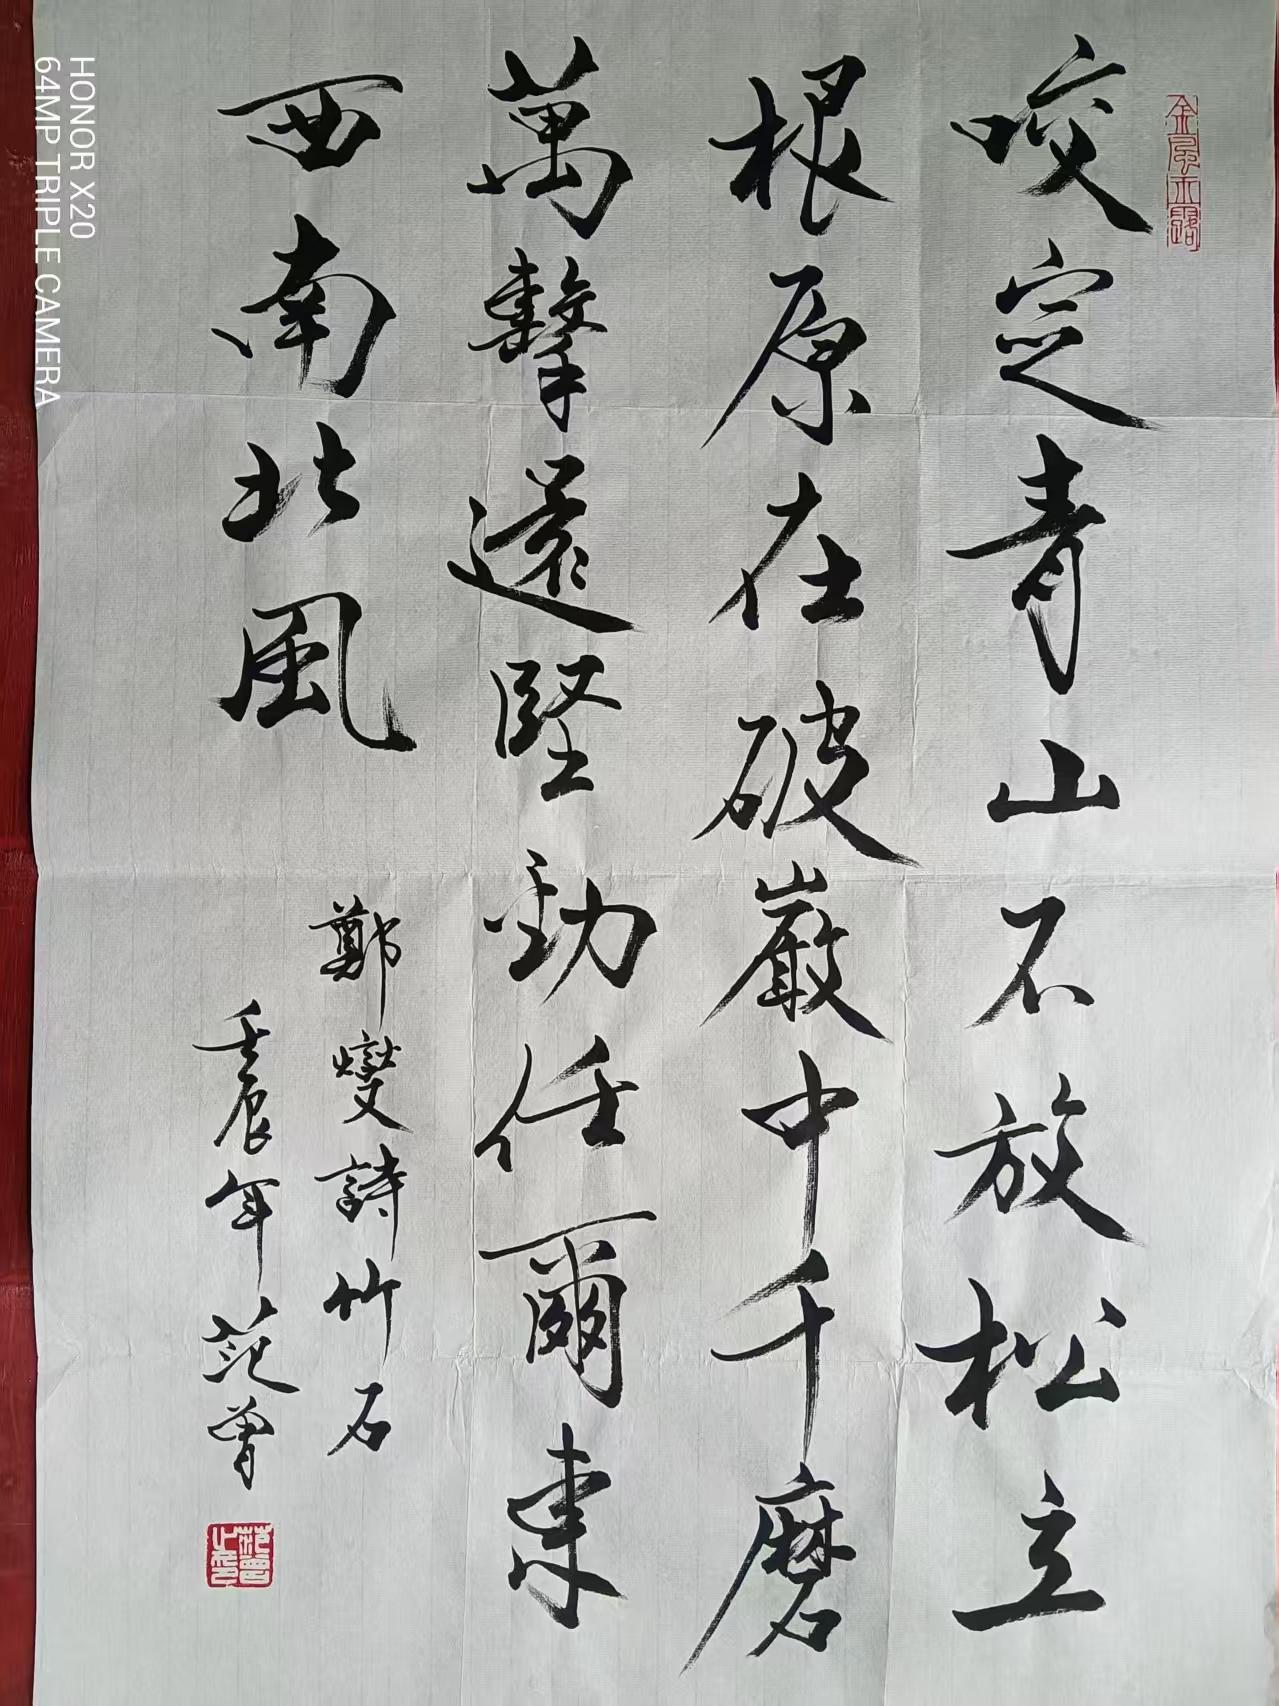 金風玉露
咬定青山不放松立
根原在破巖中千磨
萬擊還堅勁任爾東
西南北風
鄭燮詩竹石
壬辰年范曾
HONOR X20
64MP TRIPLE CAMERA